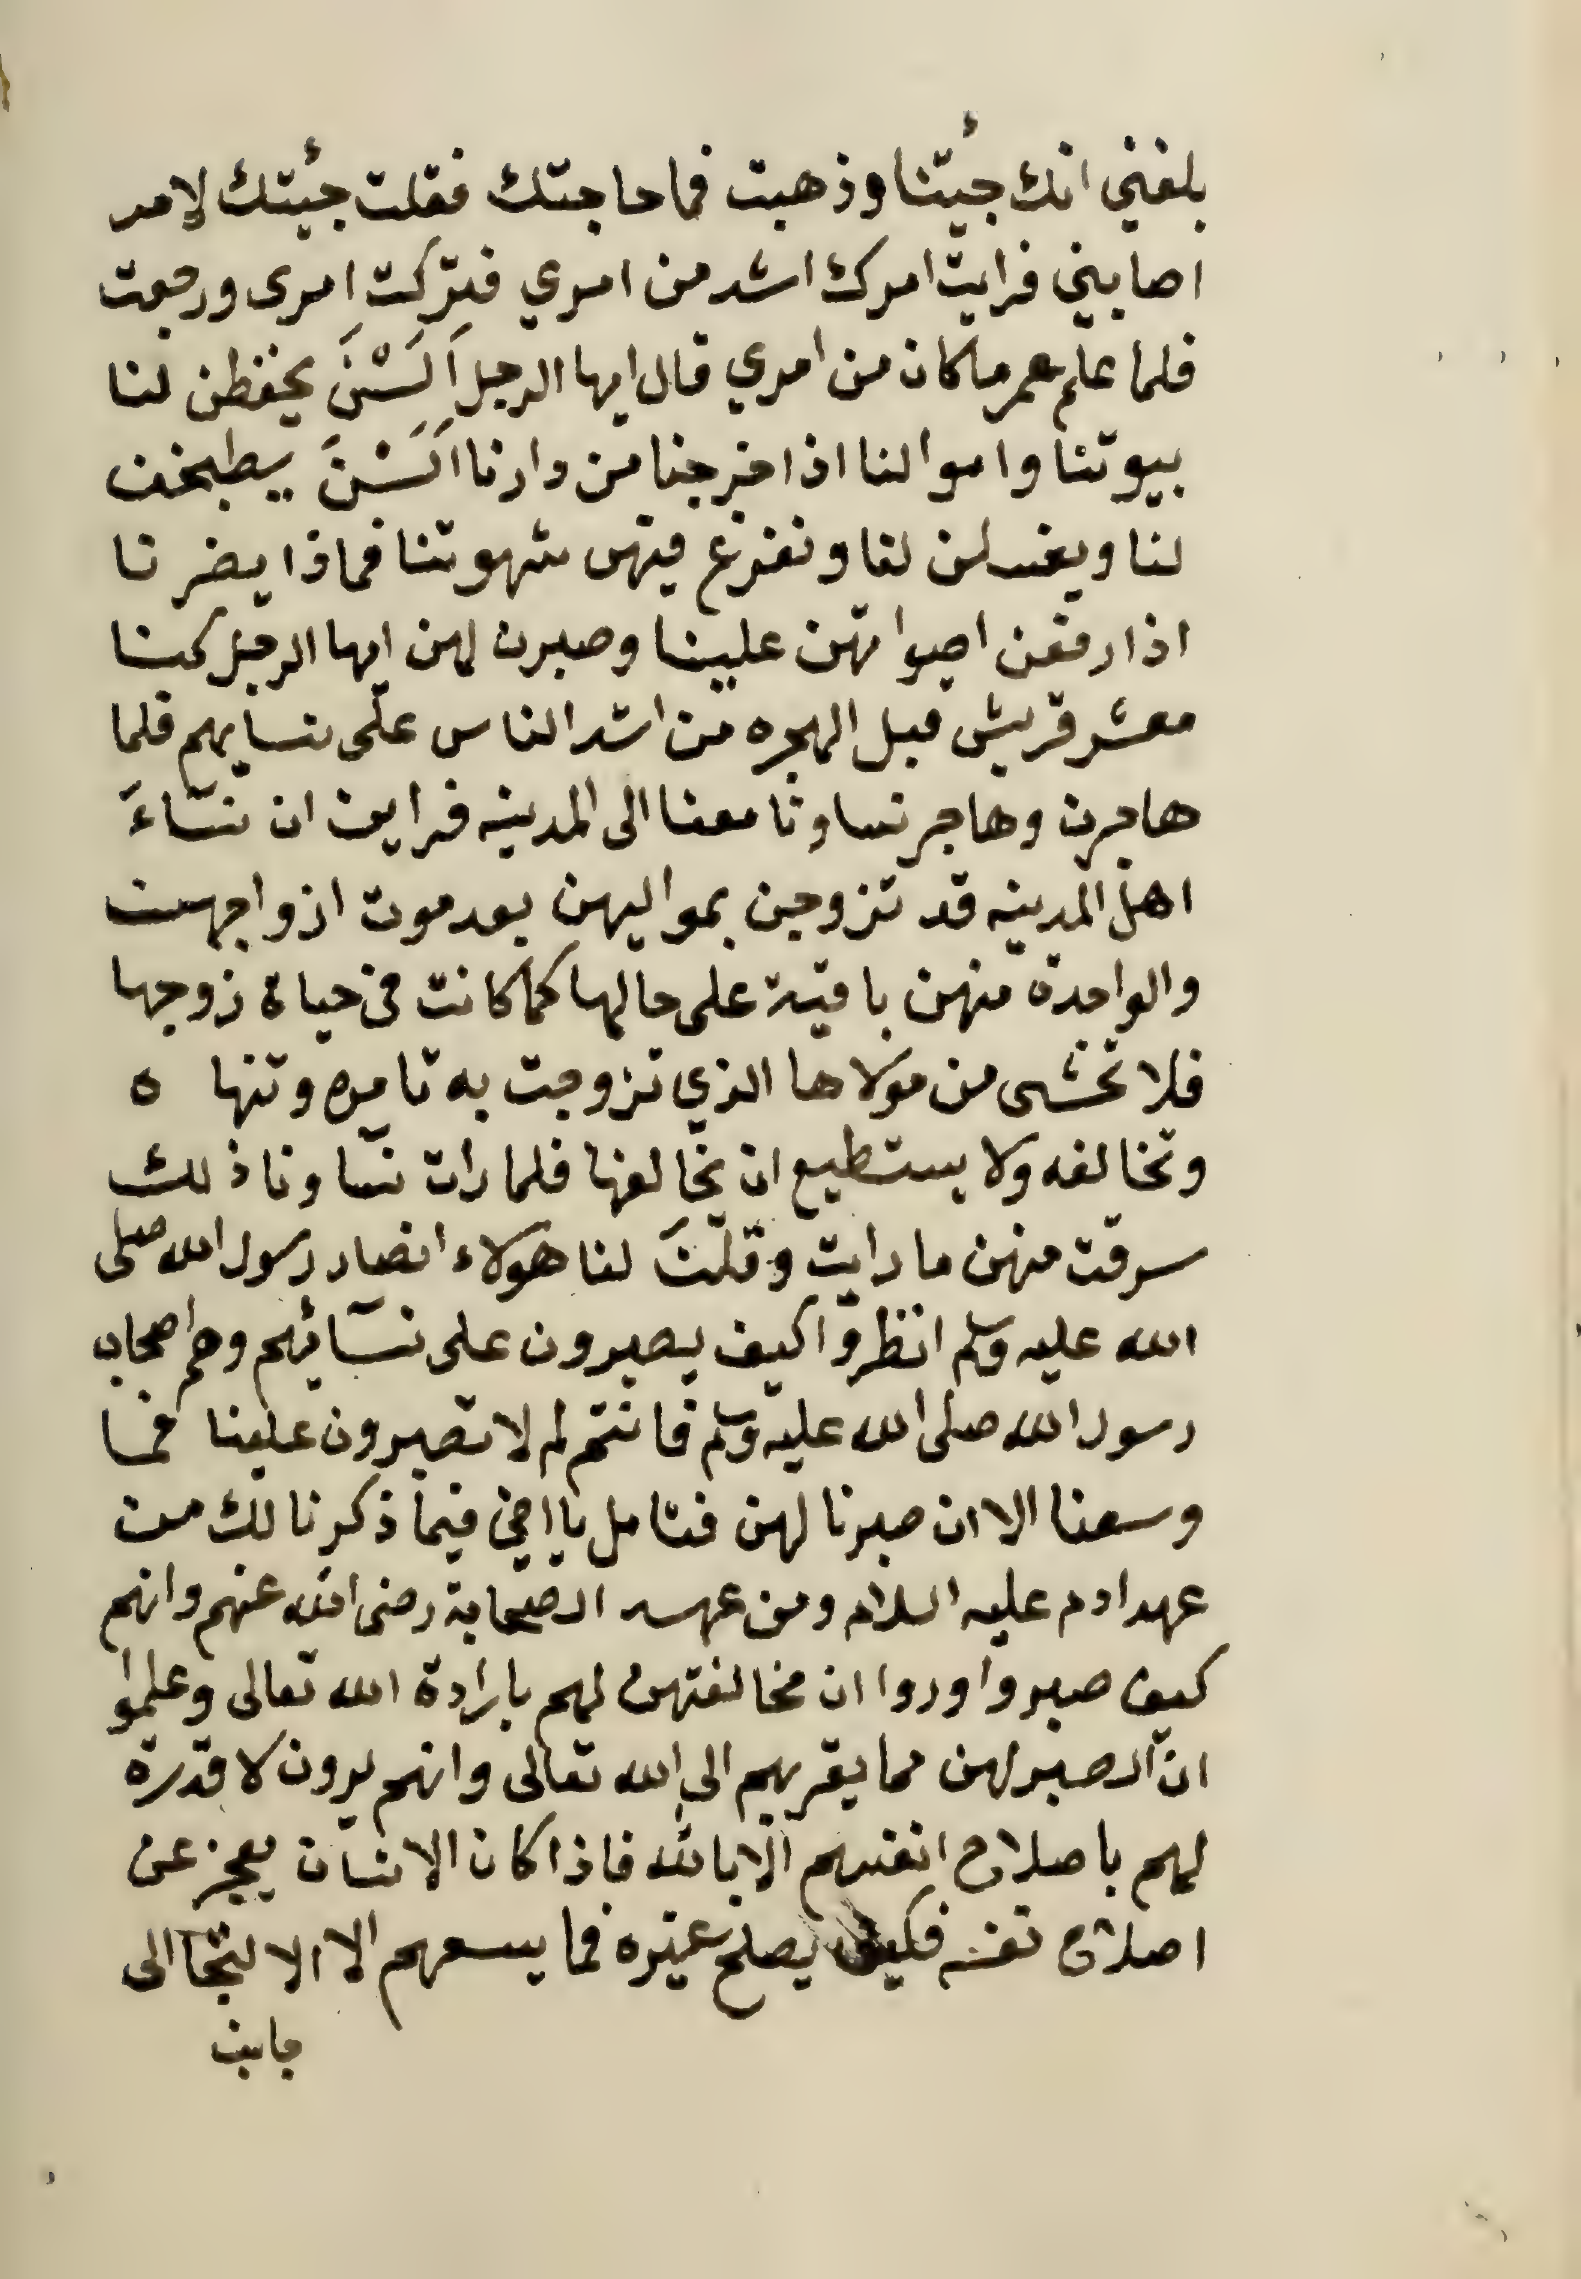 بلغني انك جئتنا وذهبت فما حاجتك فقلت جئتك لامر
اصابني فرايت امرك اشد من امري فتركت امري ورجعت
فلما علم عمر ما كان من امري قال ايها الرجل اَلَسْنَ يحفظن لنا
بيوتنا واموالنا اذا خرجنا من دارنا اَلَسْنَ يطبخن
لنا ويغسلن لنا ونفرغ فيهن شهوتنا فماذا يضرنا
اذا رفعن اصواتهن علينا وصبرن لهن ايها الرجل كنا
معشر قريش قبل الهجره من اشد الناس على نسايهم فلما
هاجرن وهاجر نساونا معنا الى المدينه فراين ان نسآءَ
اهل المدينه قد تزوجن بمواليهن بعد موت ازواجهن
والواحدة منهن باقية على حالها كما كانت في حياة زوجها
فلا تخشى من مولاها الذي تزوجت به تامره وتنهاه
وتخالفه ولا يستطيع ان يخالفها فلما رات نساونا ذلك
سرقت منهن ما رايت وقلنَ لنا هولاء انصار رسول الله صلى
الله عليه وسلم انظروا كيف يصبرون على نسآئهم وهم اصحاب
رسول الله صلى الله عليه وسلم فانتم لم لا تصبرون علينا فما
وسعنا الا ان صبرنا لهن فتامل يا اخي فيما ذكرنا لك من
عهد ادم عليه السلام ومن عهد الصحابة رضى الله عنهم وانهم
كيف صبروا وروا ان مخالفتهن لهم بارادة الله تعالى وعلموا
انّ الصبر لهن مما يقربهم الى الله تعالى وانهم يرون لا قدرة
لهم باصلاح انفسهم الا بالله فاذا كان الانسان يعجز عن
اصلاح نفسه فكيف يصلح غيره فما يسعهم الا الالتجا الى
جانب